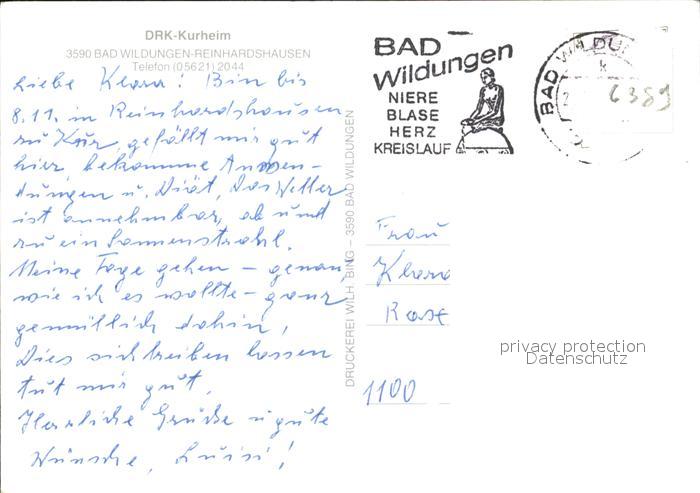 DRK-Kurheim
3590 BAD WILDUNGEN-REINHARDSHAUSEN
Telefon (05621) 2044
Liebe Klara! Bin bis
8.11. in Reinhardshausen
zu Kur, gefällt mir gut
hier, bekomme Anwen-
dungen u. Diät, das Wetter
ist annehmbar, ab und
zu ein Sonnenstrahl.
Meine Tage gehen – genau,
wie ich es wollte – ganz
gemütlich dahin,
Dies sich treiben lassen
tut mir gut.
Herzliche Grüße u. gute
Wünsche, Luisi!
DRUCKEREI WILH. BING – 3590 BAD WILDUNGEN
BAD
Wildungen
NIERE
BLASE
HERZ
KREISLAUF
BAD WILDU
k
6389
Frau
Klara
1100
privacy protection
Datenschutz